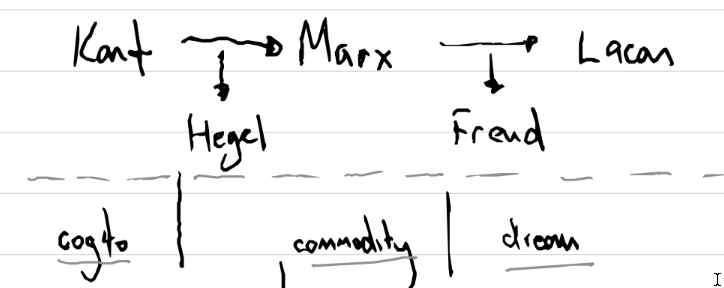 Kant → Marx → Lacan
Hegel Freud
cogito commodity dream